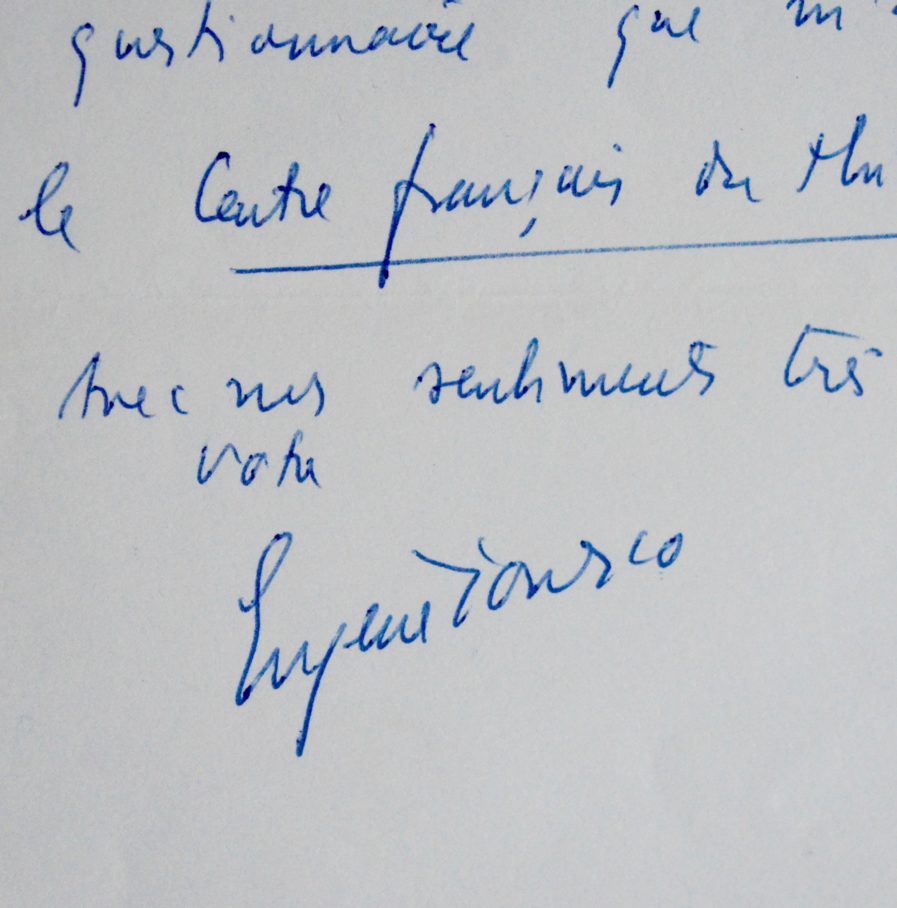 questionnaire que m'
le Centre français du Thé
Avec mes sentiments très
votre
Eugène Ionesco